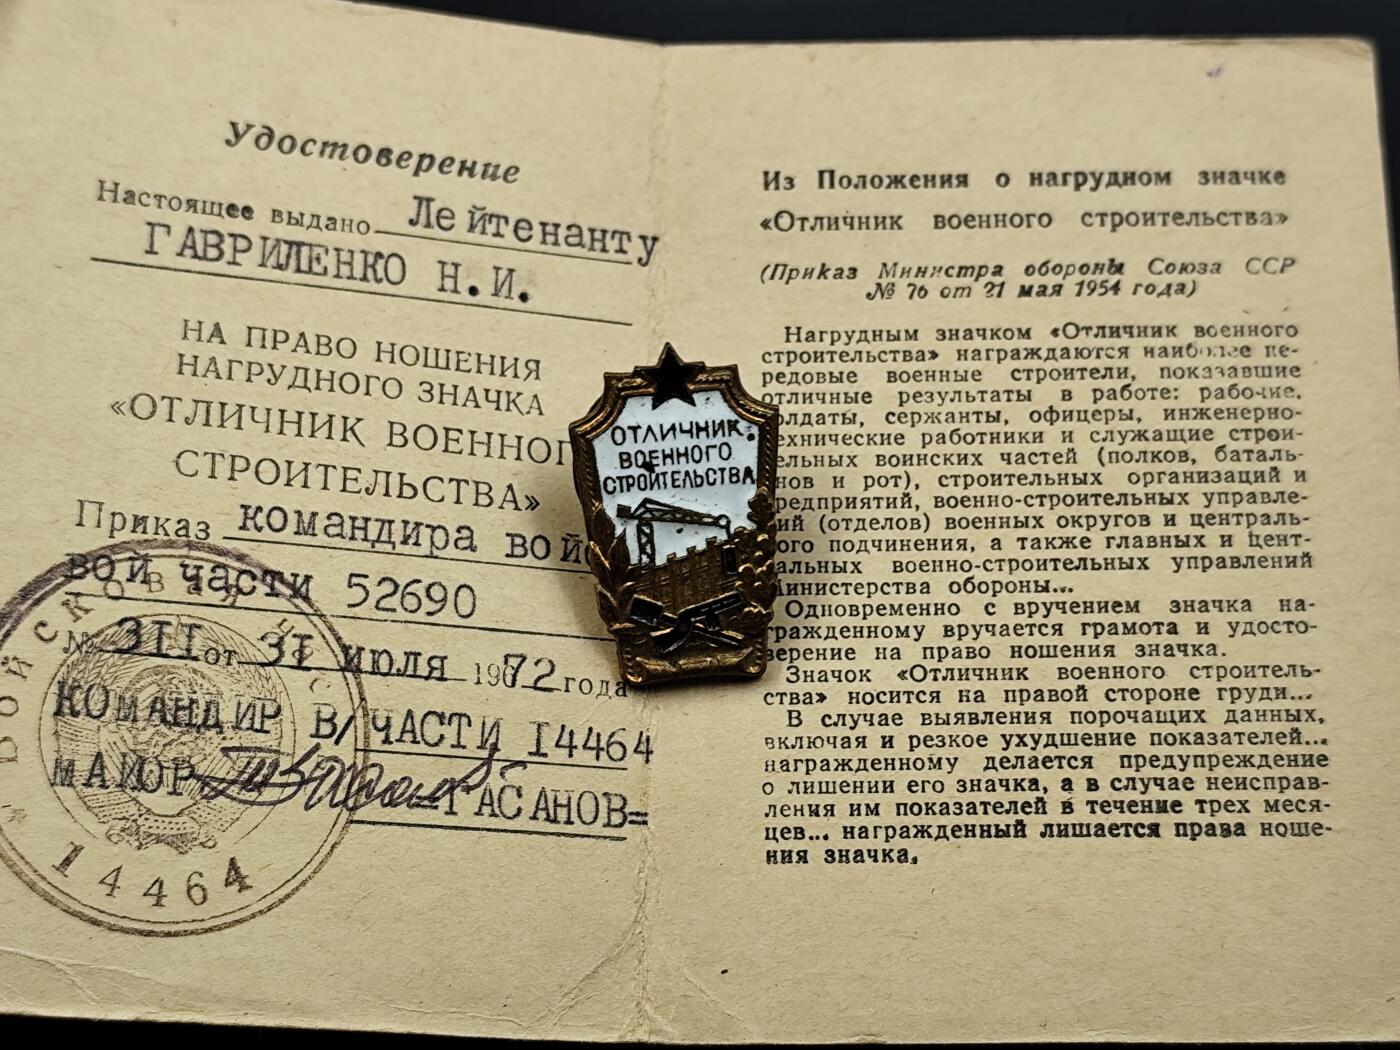 Удостоверение
Настоящее выдано Лейтенанту
ГАВРИЛЕНКО Н.И.
НА ПРАВО НОШЕНИЯ
НАГРУДНОГО ЗНАЧКА
«ОТЛИЧНИК ВОЕННОГ
СТРОИТЕЛЬСТВА»
Приказ командира войс
вой части 52690
№ 3II от 3I июля 1972 года
КОМАНДИР В/ЧАСТИ I4464
МАЙОР =ГАСАНОВ=
14464
ОТЛИЧНИК
ВОЕННОГО
СТРОИТЕЛЬСТВА
Из Положения о нагрудном значке
«Отличник военного строительства»
(Приказ Министра обороны Союза ССР
№ 76 от 21 мая 1954 года)
Нагрудным значком «Отличник военного
строительства» награждаются наиболее пе-
редовые военные строители, показавшие
отличные результаты в работе: рабочие,
солдаты, сержанты, офицеры, инженерно-
технические работники и служащие строи-
ельных воинских частей (полков, баталь-
нов и рот), строительных организаций и
редприятий, военно-строительных управле-
ий (отделов) военных округов и централь-
ого подчинения, а также главных и цент-
альных военно-строительных управлений
Министерства обороны...
Одновременно с вручением значка на-
гражденному вручается грамота и удосто-
верение на право ношения значка.
Значок «Отличник военного строитель-
ства» носится на правой стороне груди...
В случае выявления порочащих данных,
включая и резкое ухудшение показателей...
награжденному делается предупреждение
о лишении его значка, а в случае неисправ-
ления им показателей в течение трех меся-
цев... награжденный лишается права ноше-
ния значка.